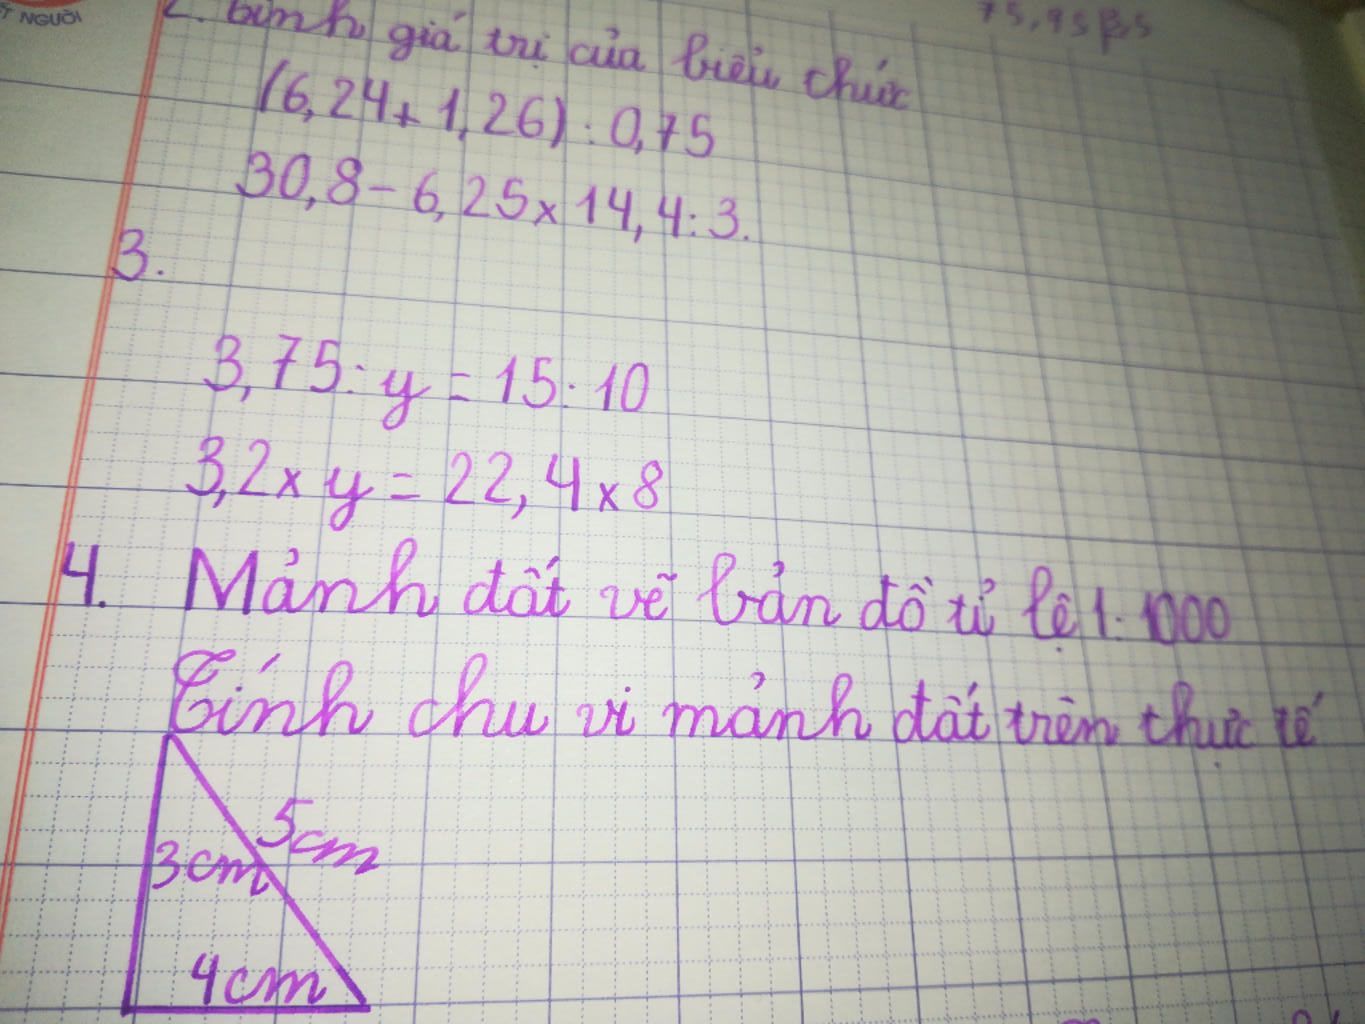 NGƯỜI
2. Tính giá trị của biểu thức
(6,24+1,26):0,75
30,8-6,25x14,4:3.
3.
3,75:y=15:10
3,2xy=22,4x8
4. Mảnh đất vẽ bản đồ tỉ lệ 1:1000
Tính chu vi mảnh đất trên thực tế
5cm
3cm
4cm